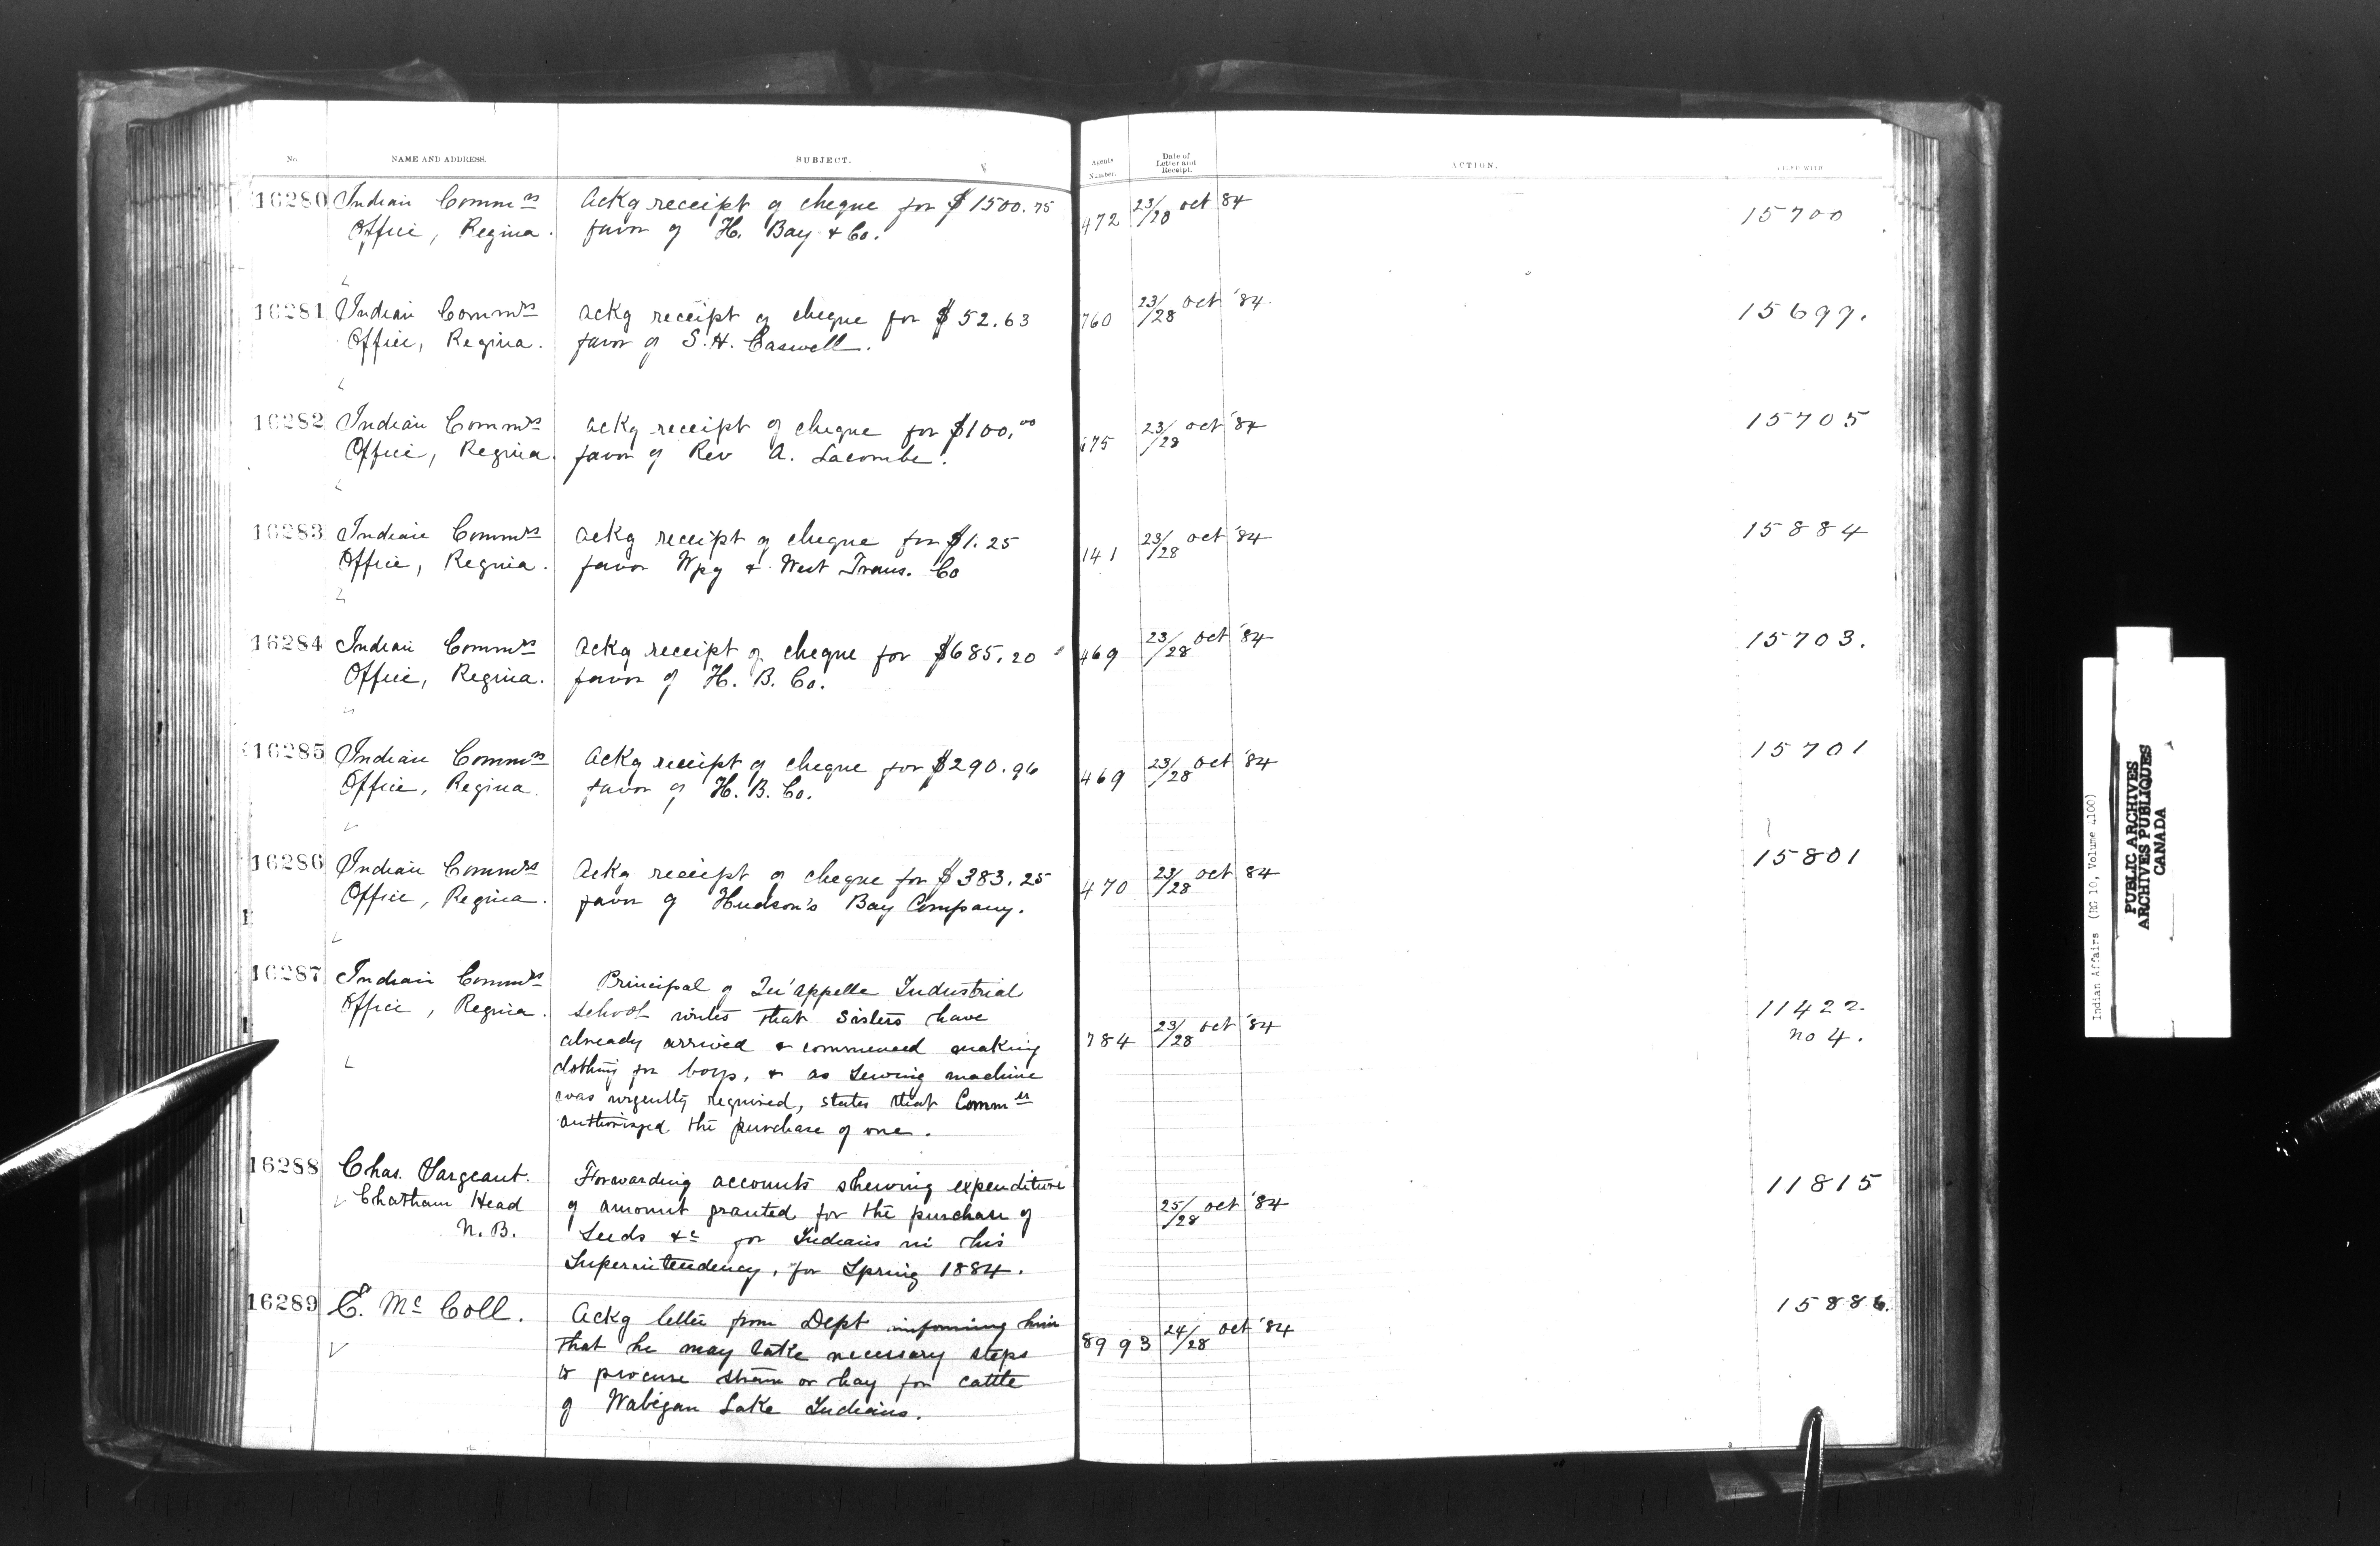 No.
NAME AND ADDRESS.
SUBJECT.
Agents Number.
Date of Letter and Receipt.
ACTION.
16280 Indian Comm rs Ackg receipt of cheque for $1500.75 472 23/28 Oct '84 15700
Office, Regina. favor of H. Bay & Co.
16281 Indian Comm rs Ackg receipt of cheque for $52.63 760 23/28 Oct '84 15699.
Office, Regina. favor of S. H. Caswell.
16282 Indian Comm rs Ackg receipt of cheque for $100.00 23/28 Oct '84 15705
Office, Regina. favor of Rev A. Lacombe.
16283 Indian Comm rs Ackg receipt of cheque for $1.25 141 23/28 Oct '84 15884
Office, Regina. favor Wpg & West Trans. Co
16284 Indian Comm rs Ackg receipt of cheque for $685.20 469 23/28 Oct '84 15703.
Office, Regina. favor of H. B. Co.
16285 Indian Comm rs Ackg receipt of cheque for $290.96 469 23/28 Oct '84 15701
Office, Regina. favor of H. B. Co.
16286 Indian Comm rs Ackg receipt of cheque for $383.25 470 23/28 Oct '84 15801
Office, Regina. favor of Hudson's Bay Company.
16287 Indian Comm rs Principal of Qu'appelle Industrial
Office, Regina. school writes that Sisters have 11422
already arrived & commenced making 784 23/28 Oct '84 no 4.
clothing for boys, & as sewing machine
was urgently required, states that Comm er
authorized the purchase of one.
16288 Chas. Sargeant. Forwarding accounts shewing expenditure 11815
Chatham Head of amount granted for the purchase of 25/28 Oct '84
N. B. Seeds &c for Indians in his
Superintendency, for Spring 1884.
16289 E. Mc Coll. Ackg letter from Dept informing him 15886.
that he may take necessary steps 8993 24/28 Oct '84
to procure straw or hay for cattle
of Wabigan Lake Indians.
Indian Affairs (RG 10, Volume 4100)
PUBLIC ARCHIVES
ARCHIVES PUBLIQUES
CANADA